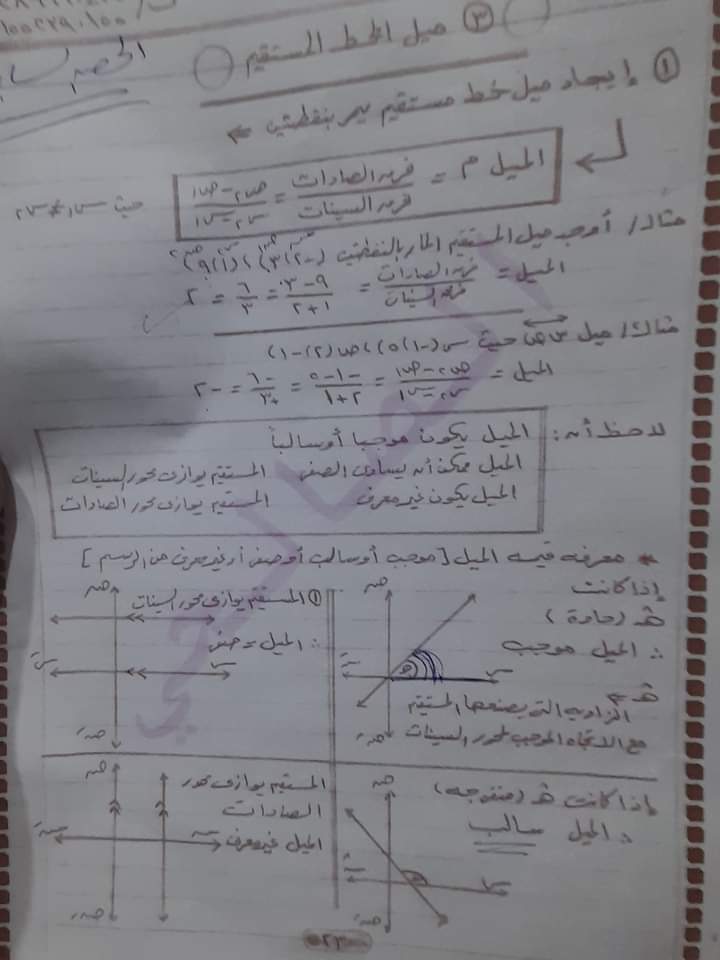 ٣ ميل الخط المستقيم
١ إيجاد ميل خط مستقيم يمر بنقطتين
الميل م = فرق الصادات / فرق السينات = ص٢ - ص١ / س٢ - س١ حيث س١ ≠ س٢
مثال/ أوجد ميل المستقيم المار بالنقطتين (-٢،٣)، (١،٩)
الميل = فرق الصادات / فرق السينات = ٩-٣ / ١+٢ = ٦/٣ = ٢
مثال/ ميل س ص حيث س(-١،٥)، ص(٢،-١)
الميل = ص٢ - ص١ / س٢ - س١ = -١-٥ / ٢+١ = -٦/+٣ = -٢
لاحظ أنه: الميل يكون موجباً أو سالباً
الميل ممكن أنه يساوى الصفر المستقيم يوازى محور السينات
الميل يكون غير معرف المستقيم يوازى محور الصادات
* معرفة قيمة الميل [موجب أو سالب أو صفر أو غير معرف من الرسم]
إذا كانت
هـ (حادة)
∴ الميل موجب
هـ
الزاوية التى يصنعها المستقيم
مع الاتجاه الموجب لمحور السينات
صَ
سَ
س
هـ
صَ
١ المستقيم يوازى محور السينات
∴ الميل = صفر
صـ
سَ
س
صَ
إذا كانت هـ (منفرجة)
∴ الميل سالب
صـ
سَ
س
هـ
صَ
المستقيم يوازى محور
الصادات
الميل غير معرف
صـ
سَ
س
صَ
٢٣
الصالحي